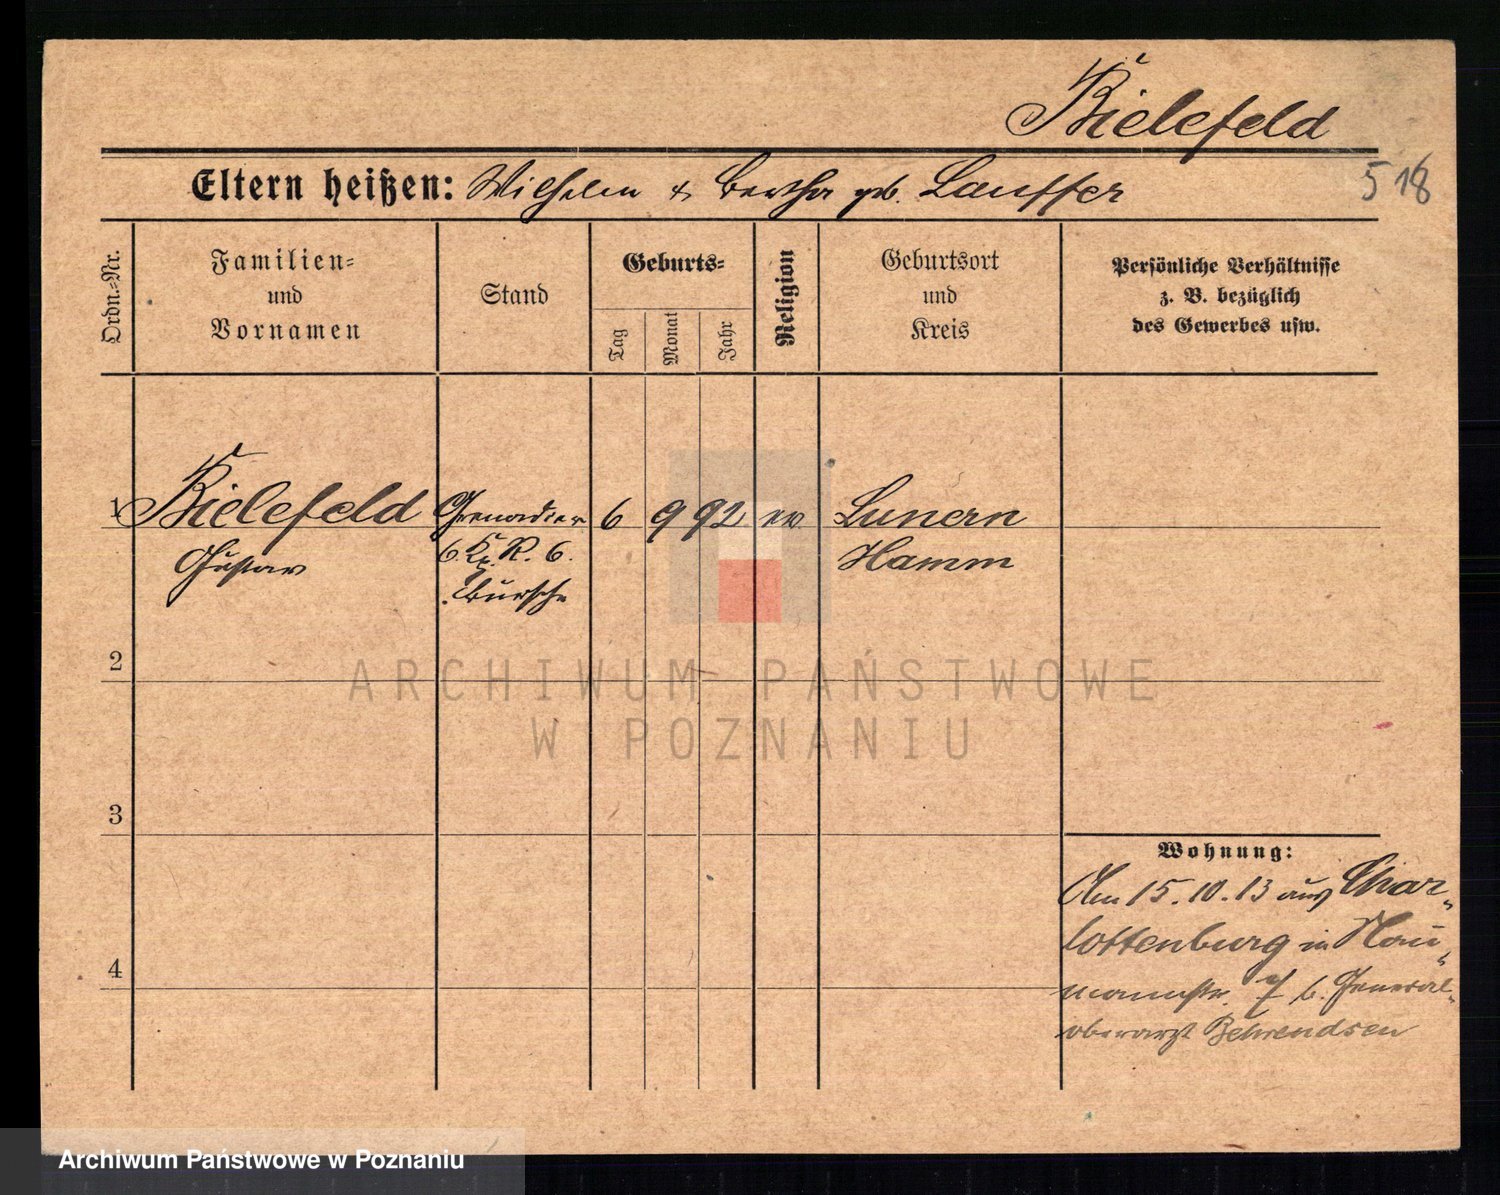 Bielefeld
Eltern heißen: Wilhelm & Bertha geb. Lauffer
518
Ordn.-Nr.
Familien-
und
Vornamen
Stand
Geburts-
Tag
Monat
Jahr
Religion
Geburtsort
und
Kreis
Persönliche Verhältnisse
z. B. bezüglich
des Gewerbes usw.
1 Bielefeld Grenadier 6 9 92 ev. Lunern
Gustav 6. Kp. R. 6. Hamm
Bursche
2
ARCHIWUM PAŃSTWOWE
W POZNANIU
3
Wohnung:
Am 15.10.13 aus Char-
lottenburg in Nau-
mannstr. 7 b. General-
oberarzt Behrendsen
4
Archiwum Państwowe w Poznaniu